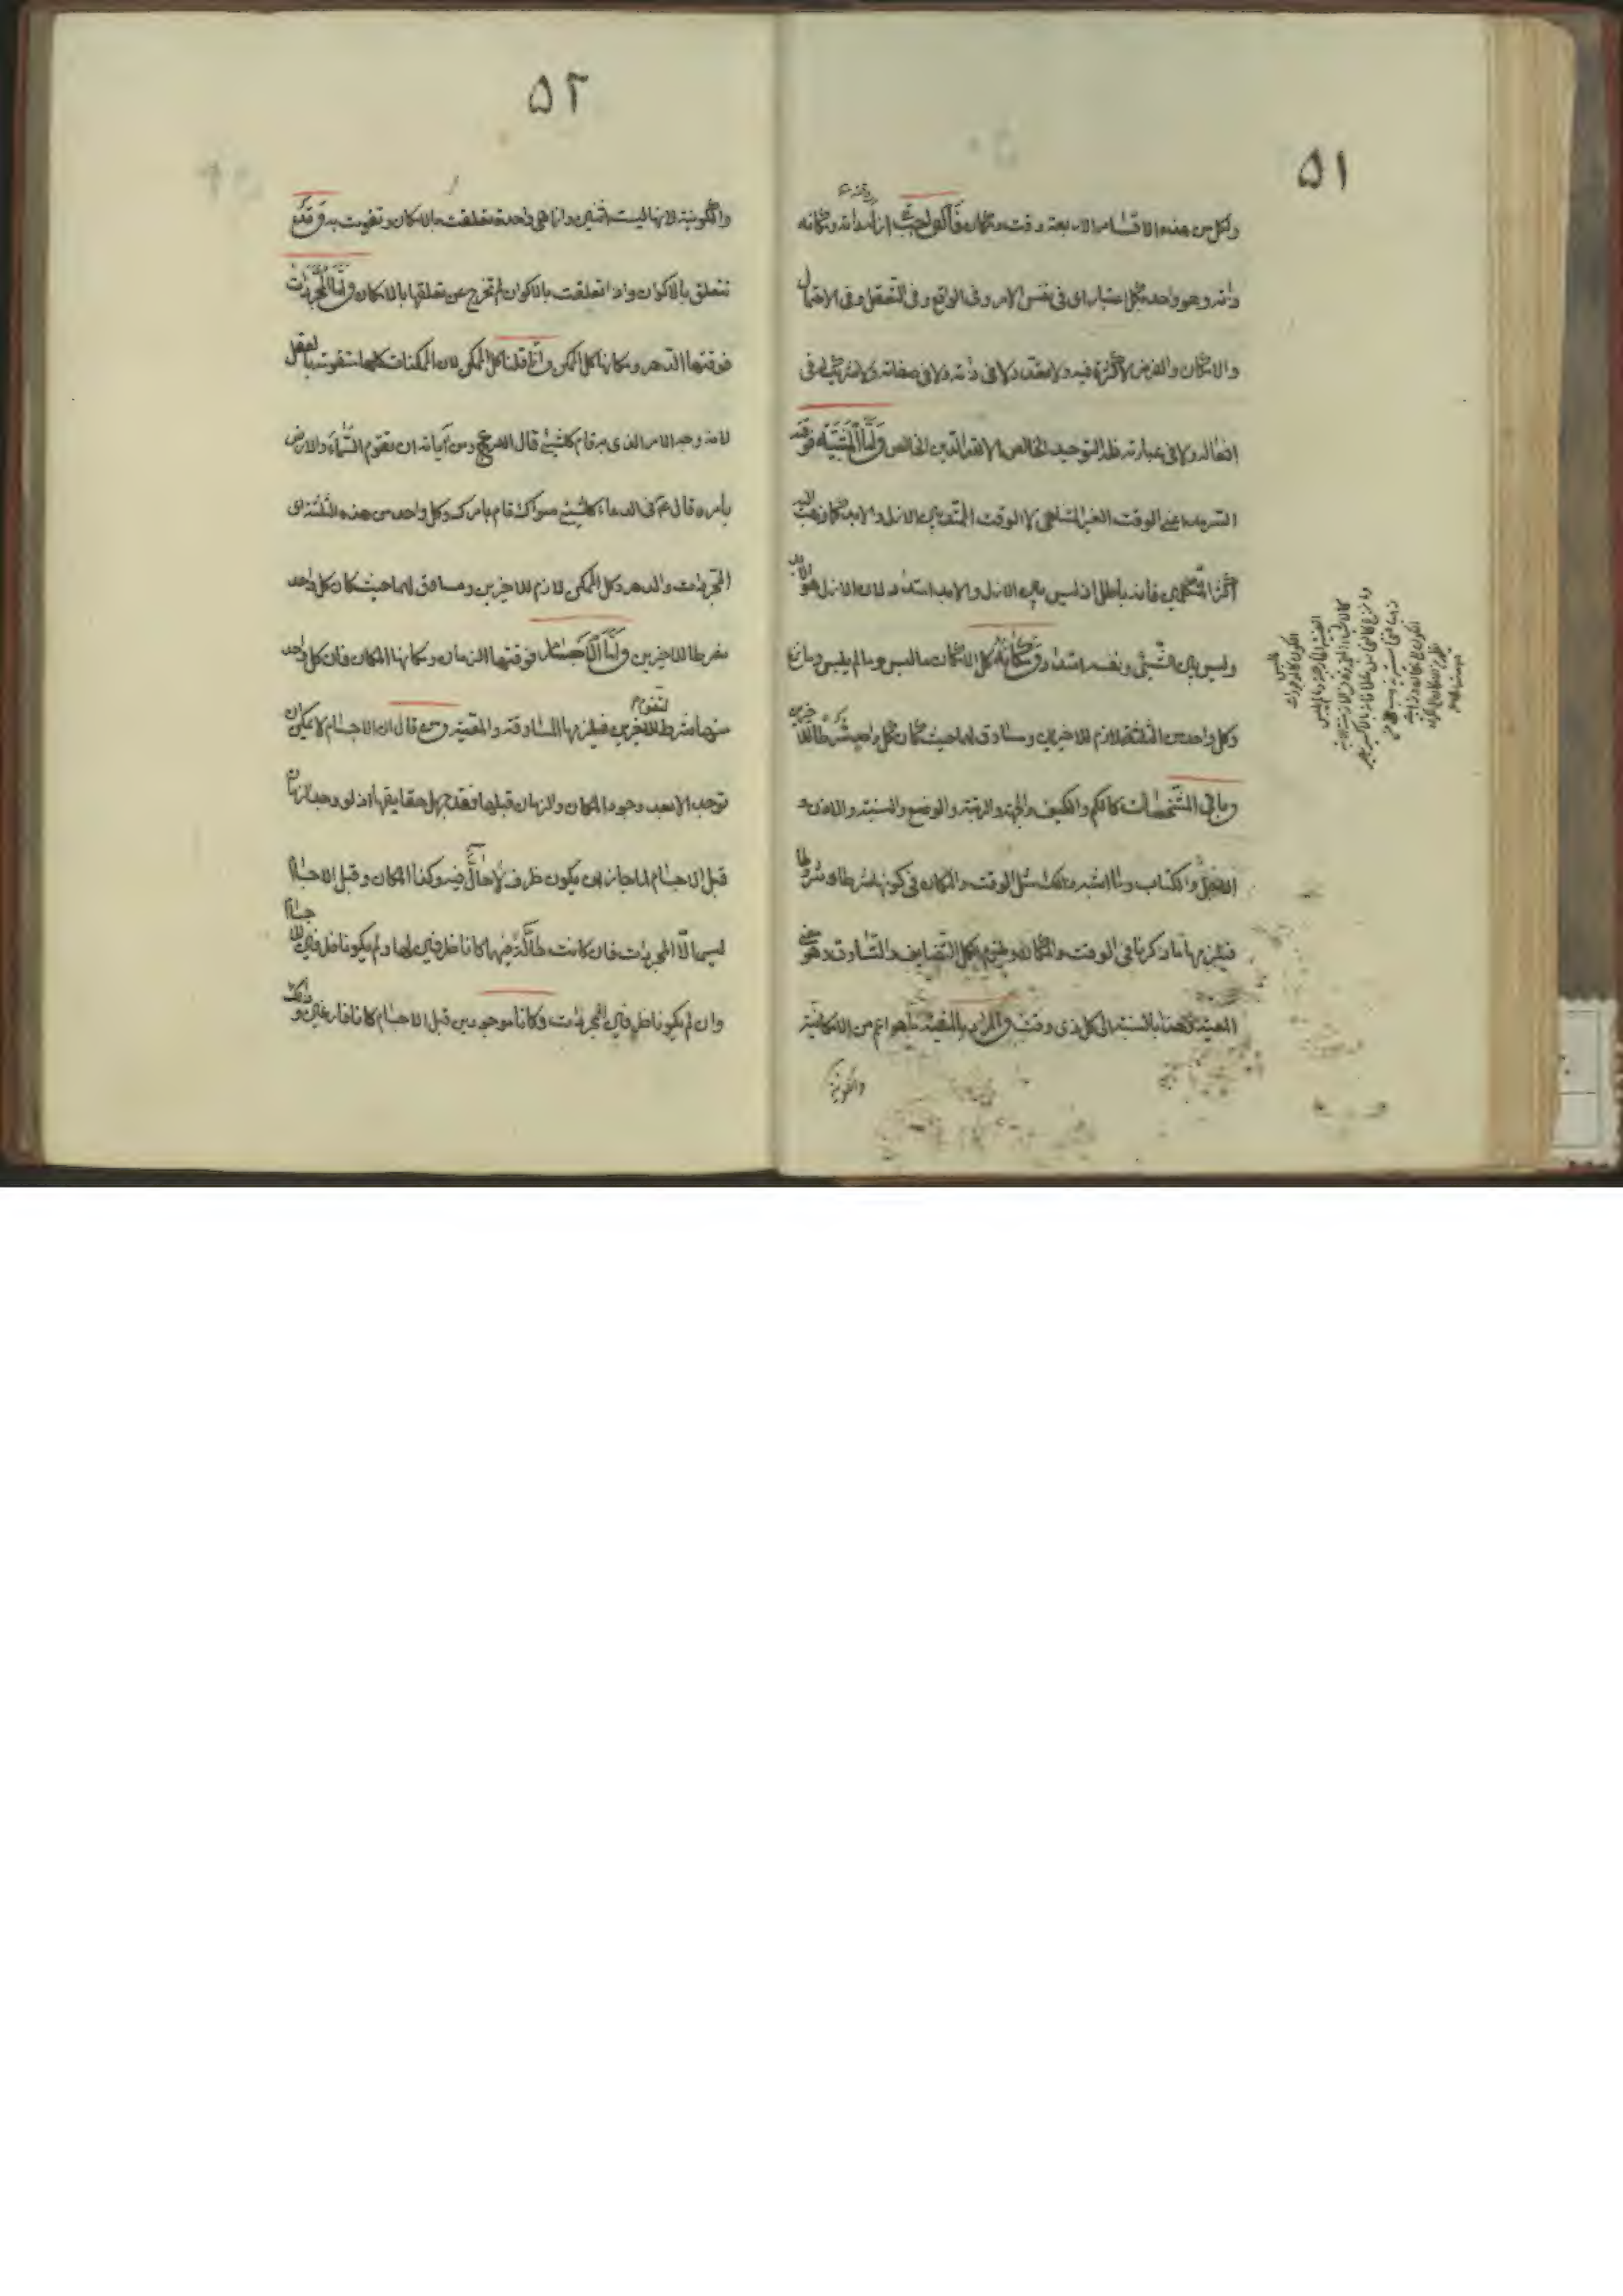 ٥١
ولكل من هذه الاقسام الاربعة وقت ومكان فالواجب ازله ذاته ومكانه
ذاته وهو واحد بكل اعتبار اى فى نفس الامر وفى الواقع وفى التعقل وفى الاحتمال
والامكان والفرض لا كثرة فيه ولا تعدد لا فى ذاته ولا فى صفاته ولا شريك له فى
افعاله ولا فى عبادته فله التوحيد الخالص الا لله الدين الخالص واما المشية فوقته
السرمد اعنى الوقت الغير المتناهى لا الوقت الممتد بين الازل والابد كما ذهب اليه
اكثر المتكلمين فانه باطل اذ ليس بين الازل والابد امتداد لان الازل هو الابد
وليس بين الشئ ونفسه امتداد ومكانه كل الامكان مما لبس وما لم يلبس
وكل واحد من الثلثة لازم للاخرين ومساوق لهما حيث كان كل واحد شرطا للاخرين
وباقى المشخصات كالكم والكيف والجهة والرتبة والوضع والنسبة والاذن و
الاجل والكتاب وما اشبه ذلك مثل الوقت والمكان فى كونها شرطا و شروطا
فيلزمها ما ذكرنا فى الوقت والمكان من التضايف والتساوق وهو معنى
المعية هنا بالنسبة الى كل ذى وقت والمراد بالمشية ما هو اعم من الامكانية
والكونية
٥٢
والكونية لانها ليست اثنين وانما هى واحدة تعلقت بالامكان وتقومت به وقد
تتعلق بالاكوان واذا تعلقت بالاكوان لم تخرج عن تعلقها بالامكان واما المجردات
فوقتها الدهر ومكانها كل الممكن وانما قلنا كل الممكن لان الممكنات كلها متقومة بالعقل
لانه وجه الامر الذى به قام كل شئ قال الله تع ومن آياته ان تقوم السماء والارض
بامره قال ع فى الدعاء كل شئ سواك قام بامرك وكل واحد من هذه الثلثة اى
المجردات والدهر وكل الممكن لازم للاخرين ومساوق لهما حيث كان كل واحد
شرطا للاخرين واما الاجسام فوقتها الزمان ومكانها المكان فان كل واحد
منها شرط لتقوم الاخرين فيلزمها المساوقة والمعية ومن قال ان الاجسام لا يمكن ان
توجد الا بعد وجود المكان والزمان قبلها فقد جهل حقايقها اذ لو وجد الزمان
قبل الاجسام لما جاز ان يكون ظرف لا حال فيه وكذا المكان وقبل الاجسام
ليس الا المجردات فان كانت حالة فيها كانا ظرفين لها ولم يكونا ظرفين للاجسام
وان لم يكونا ظرفين للمجردات وكانا موجودين قبل الاجسام كانا فارغين وذلك